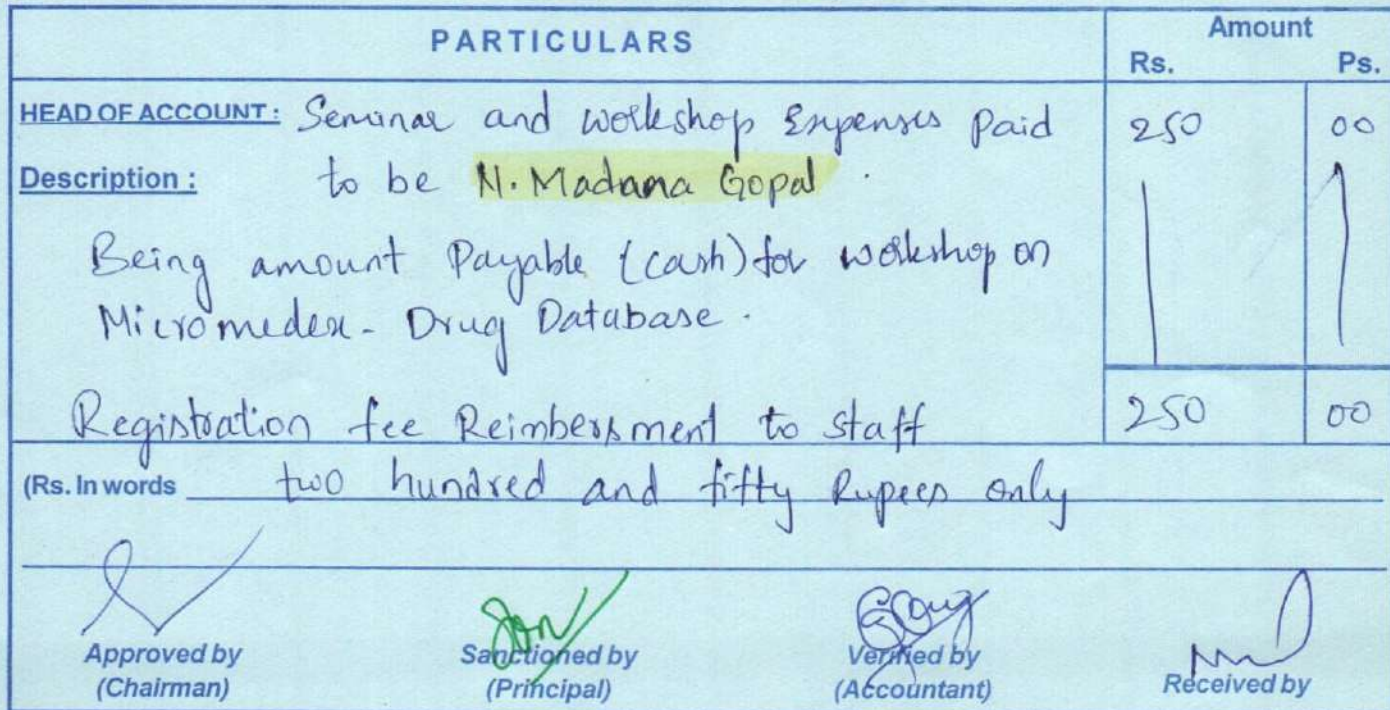 PARTICULARS
Amount
Rs. Ps.
HEAD OF ACCOUNT: Seminar and workshop Expenses Paid 250 00
Description : to be N. Madana Gopal.
Being amount Payable (cash) for workshop on
Micromedex - Drug Database.
Registration fee Reimbersment to staff 250 00
(Rs. In words two hundred and fifty Rupees only
Approved by Sanctioned by Verified by Received by
(Chairman) (Principal) (Accountant)